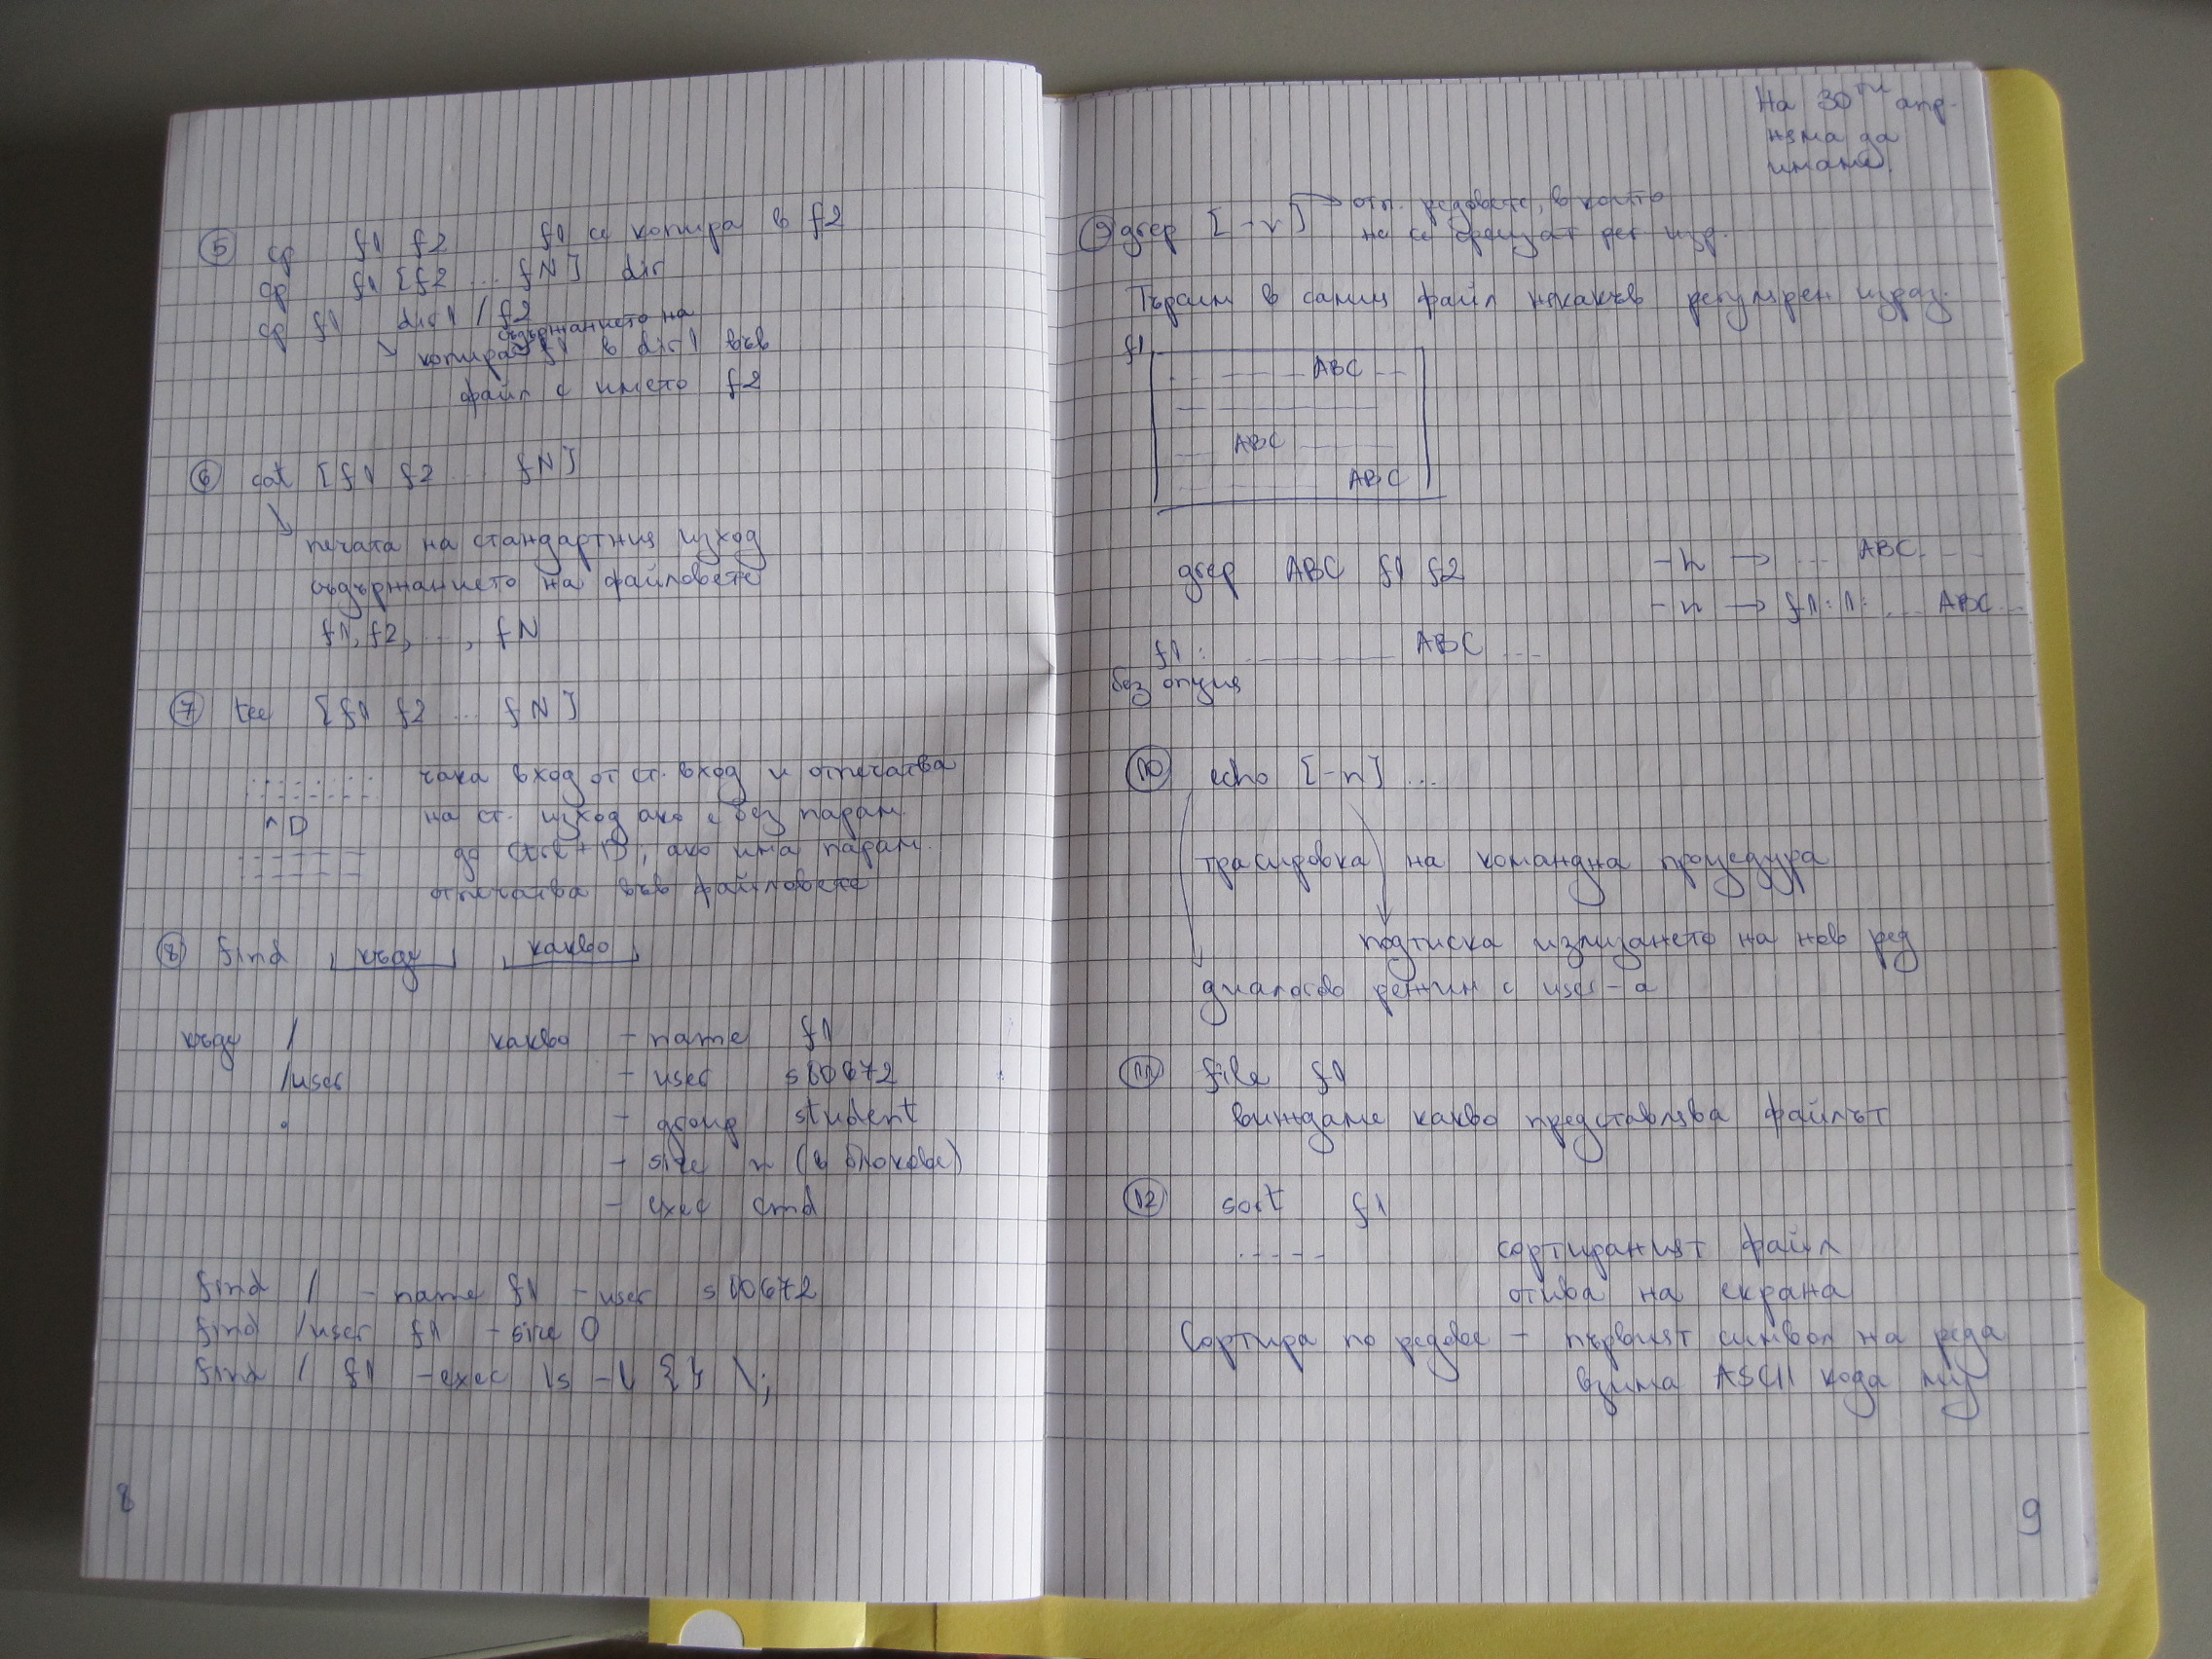 ⑤ cp f1 f2 f1 се копира в f2
cp f1 [f2 ... fN] dir
cp f1 dir1 / f2
съдържанието на
копира f1 в dir1 във
файл с името f2
⑥ cat [f1 f2 ... fN]
печата на стандартния изход
съдържанието на файловете
f1, f2, ..., fN
⑦ tee [f1 f2 ... fN]
чака вход от ст. вход и отпечатва
^D на ст. изход ако е без парам.
до Ctrl+D, ако има парам.
отпечатва във файловете
⑧ find къде какво
къде / какво - name f1
/user - user s10672
. - group student
- size n (в блокове)
- exec cmd
find / - name f1 - user s10672
find /user f1 - size 0
find / f1 -exec ls -l {} \;
8
На 30ти апр.
няма да
имаме.
⑨ grep [-v] → отп. редовете, в които
не се срещат рег. изр.
Търсим в самия файл някакъв регулярен израз.
f1
ABC
ABC
ABC
grep ABC f1 f2
-h → ... ABC ...
-n → f1:1: ... ABC ...
f1: ... ABC ...
без опция
⑩ echo [-n] ...
трасировка на командна процедура
подтиска излизането на нов ред
диалогов режим с user-a
⑪ file f1
виждаме какво представлява файлът
⑫ sort f1
.....
сортираният файл
отива на екрана
Сортира по редове - първият символ на реда
взима ASCII кода му
9